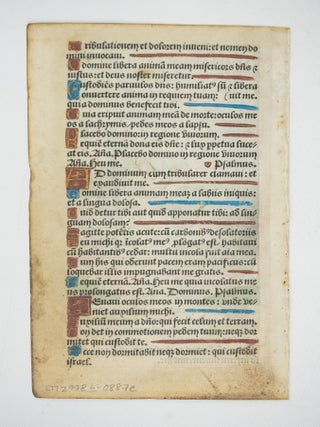 Tribulationem et dolorem inveni: et nomen do
mini invocaui.
O domine libera animã meam misericors dñs ⁊
iustus: et deus noster miseretur.
Custodiẽs paruulos dñs: humiliat⁹ sũ ⁊ libera
Conuertere anima in requiem tuam: (uit me.
quia dominus benefecit tibi.
Quia eripuit animam meã de morte: oculos me
os a lachrymis. pedẽs meos a lapsu.
Placebo domino: in regione viuorum
Requiẽ eternã dona eis dñe: ⁊ lux perpetua luce
at eis. Aña. Placebo domino in regione viuorum
Aña. Heu me. Psalmus.
AD dominum cum tribularer clamaui: et
exaudiuit me.
Domine libera animam meaz a labiis iniquis:
et a lingua dolosa.
Quid detur tibi aut quid apponatur tibi: ad lin
guam dolosam:
Sagitte potẽtis acute: cũ carbonib⁹ desolatoriis
Heu michi qz icolat⁹ me⁹ plõgat⁹ est. habitaui
cũ habitantib⁹ cedar: multũ incola fuit aĩa mea.
Cum his qui oderunt pacem eram pacificus: cũ
loquebar illis impugnabant me gratis.
Requiẽ eternã. Aña. Heu me quia incolatus me
us prolongatus est. Aña. Dominus. Psalmus.
LEuaui oculos meos in montes: vnde ve-
niet auxilium michi.
Auxiliũ meum a dño: qui fecit celum et terram.
Non det in commotionem pedem tuum: neqz dor
mitet qui custodit te.
Ecce non dormitabit neqz dormiet: qui custodit
israel.